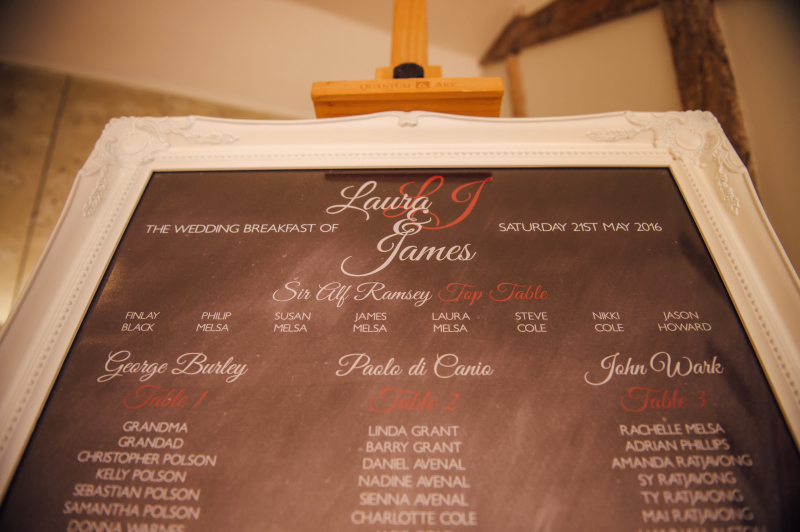 QUANTUM ART
L J
Laura
&
James
THE WEDDING BREAKFAST OF
SATURDAY 21ST MAY 2016
Sir Alf Ramsey Top Table
FINLAY BLACK
PHILIP MELSA
SUSAN MELSA
JAMES MELSA
LAURA MELSA
STEVE COLE
NIKKI COLE
JASON HOWARD
George Burley
Table 1
GRANDMA
GRANDAD
CHRISTOPHER POLSON
KELLY POLSON
SEBASTIAN POLSON
SAMANTHA POLSON
DONNA WARNES
Paolo di Canio
Table 2
LINDA GRANT
BARRY GRANT
DANIEL AVENAL
NADINE AVENAL
SIENNA AVENAL
CHARLOTTE COLE
John Wark
Table 3
RACHELLE MELSA
ADRIAN PHILLIPS
AMANDA RATJAVONG
SY RATJAVONG
TY RATJAVONG
MAI RATJAVONG